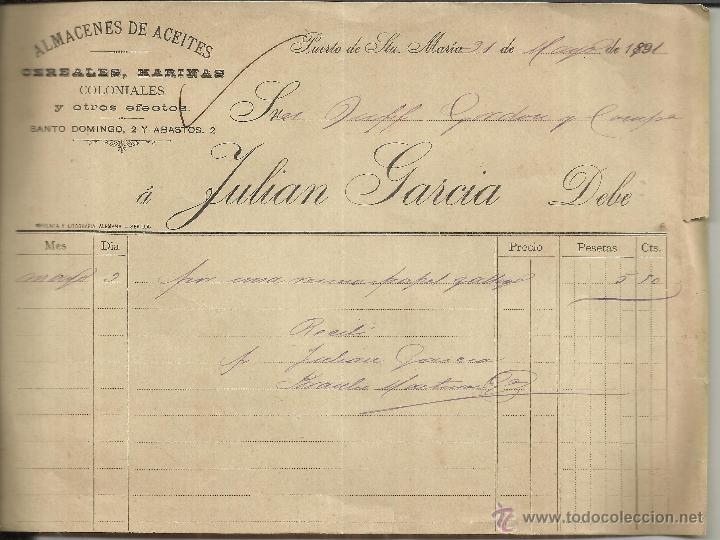 ALMACENES DE ACEITES
CEREALES, HARINAS
COLONIALES
y otros efectos.
SANTO DOMINGO, 2 Y ABASTOS, 2
Puerto de Sta. María 31 de Mayo de 1891
Sres Duff Gordon y Compa
á Julian Garcia Debe
IMPRENTA Y LITOGRAFIA ALEMANA.-SEVILLA
Mes Dia Precio Pesetas Cts.
mayo por una resma papel 5 50
Recibí
p Julian Garcia
todocoleccion
www.todocoleccion.net